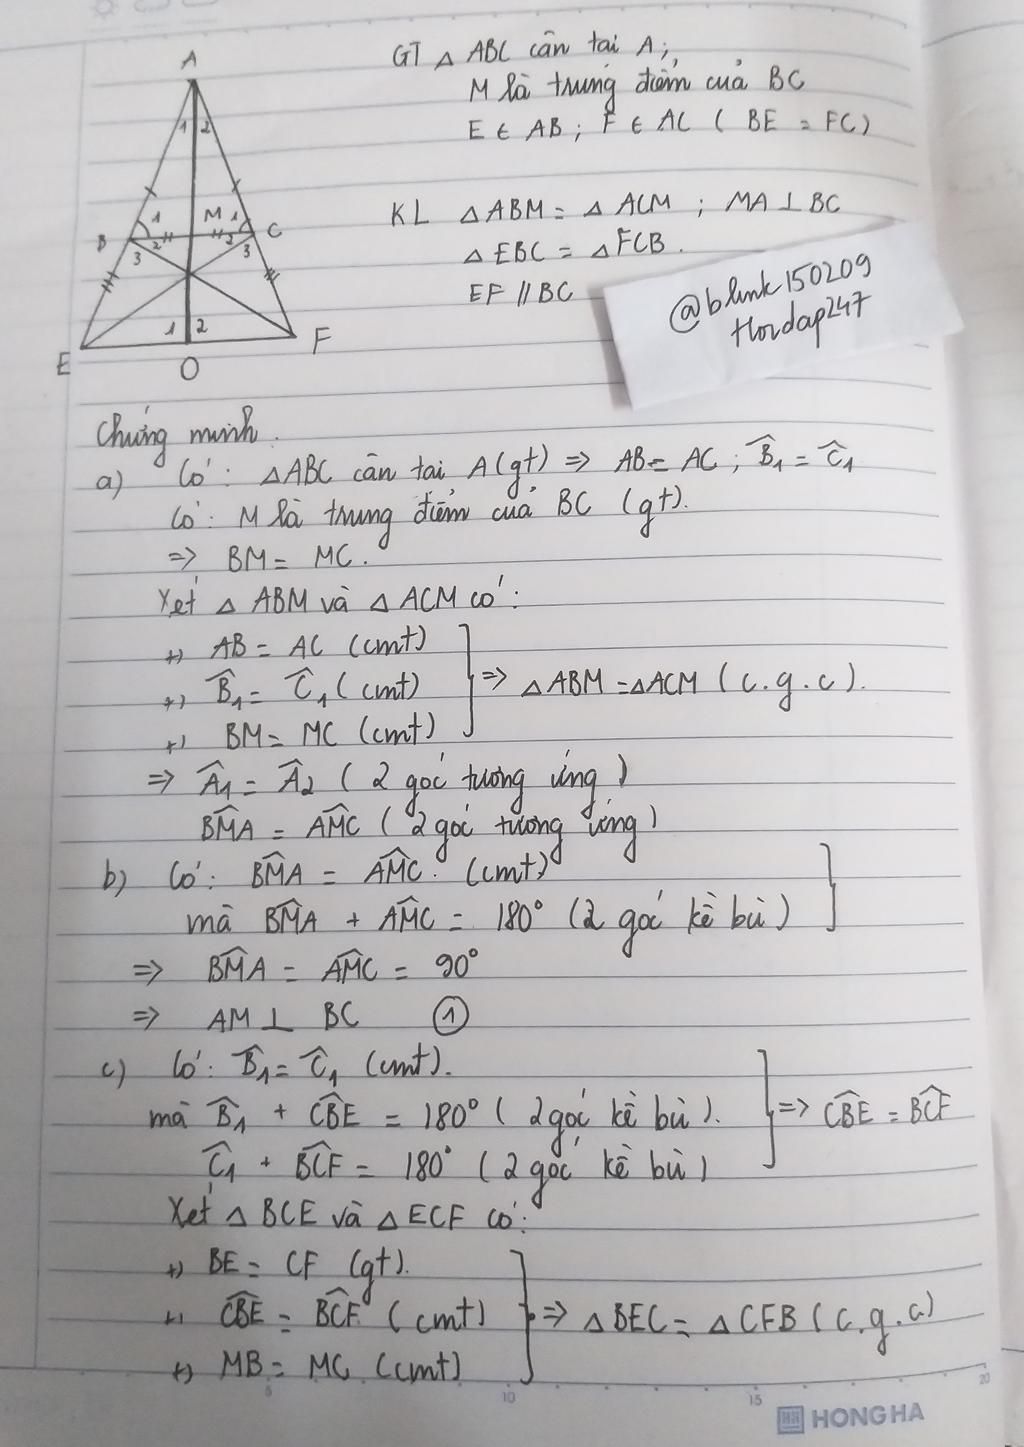 A
1 2
1
M 1
B
2
2
C
3
3
1 2
E
O
F
GT △ ABC cân tại A;
M là trung điểm của BC
E ∈ AB ; F ∈ AC ( BE = FC)
KL △ABM = △ ACM ; MA ⊥ BC
△ EBC = △ FCB .
EF // BC
@blink150209
Hoidap247
Chứng minh.
a) Có: △ABC cân tại A (gt) => AB = AC ; B̂₁ = Ĉ₁
Có: M là trung điểm của BC (gt).
=> BM = MC.
Xét △ ABM và △ ACM có:
+) AB = AC (cmt)
+) B̂₁ = Ĉ₁ (cmt) => △ABM = △ACM ( c.g.c ).
+) BM = MC (cmt)
=> Â₁ = Â₂ ( 2 góc tương ứng )
BM̂A = AM̂C ( 2 góc tương ứng )
b) Có: BM̂A = AM̂C. (cmt)
mà BM̂A + AM̂C = 180° (2 góc kề bù )
=> BM̂A = AM̂C = 90°
=> AM ⊥ BC ①
c) Có: B̂₁ = Ĉ₁ (cmt).
mà B̂₁ + CB̂E = 180° ( 2 góc kề bù ). => CB̂E = BĈF
Ĉ₁ + BĈF = 180° ( 2 góc kề bù )
Xét △ BCE và △ ECF có:
+) BE = CF (gt).
+) CB̂E = BĈF ( cmt) => △BEC = △ CFB ( c.g.c)
+) MB = MC (cmt)
5 10 15 20
HONG HA